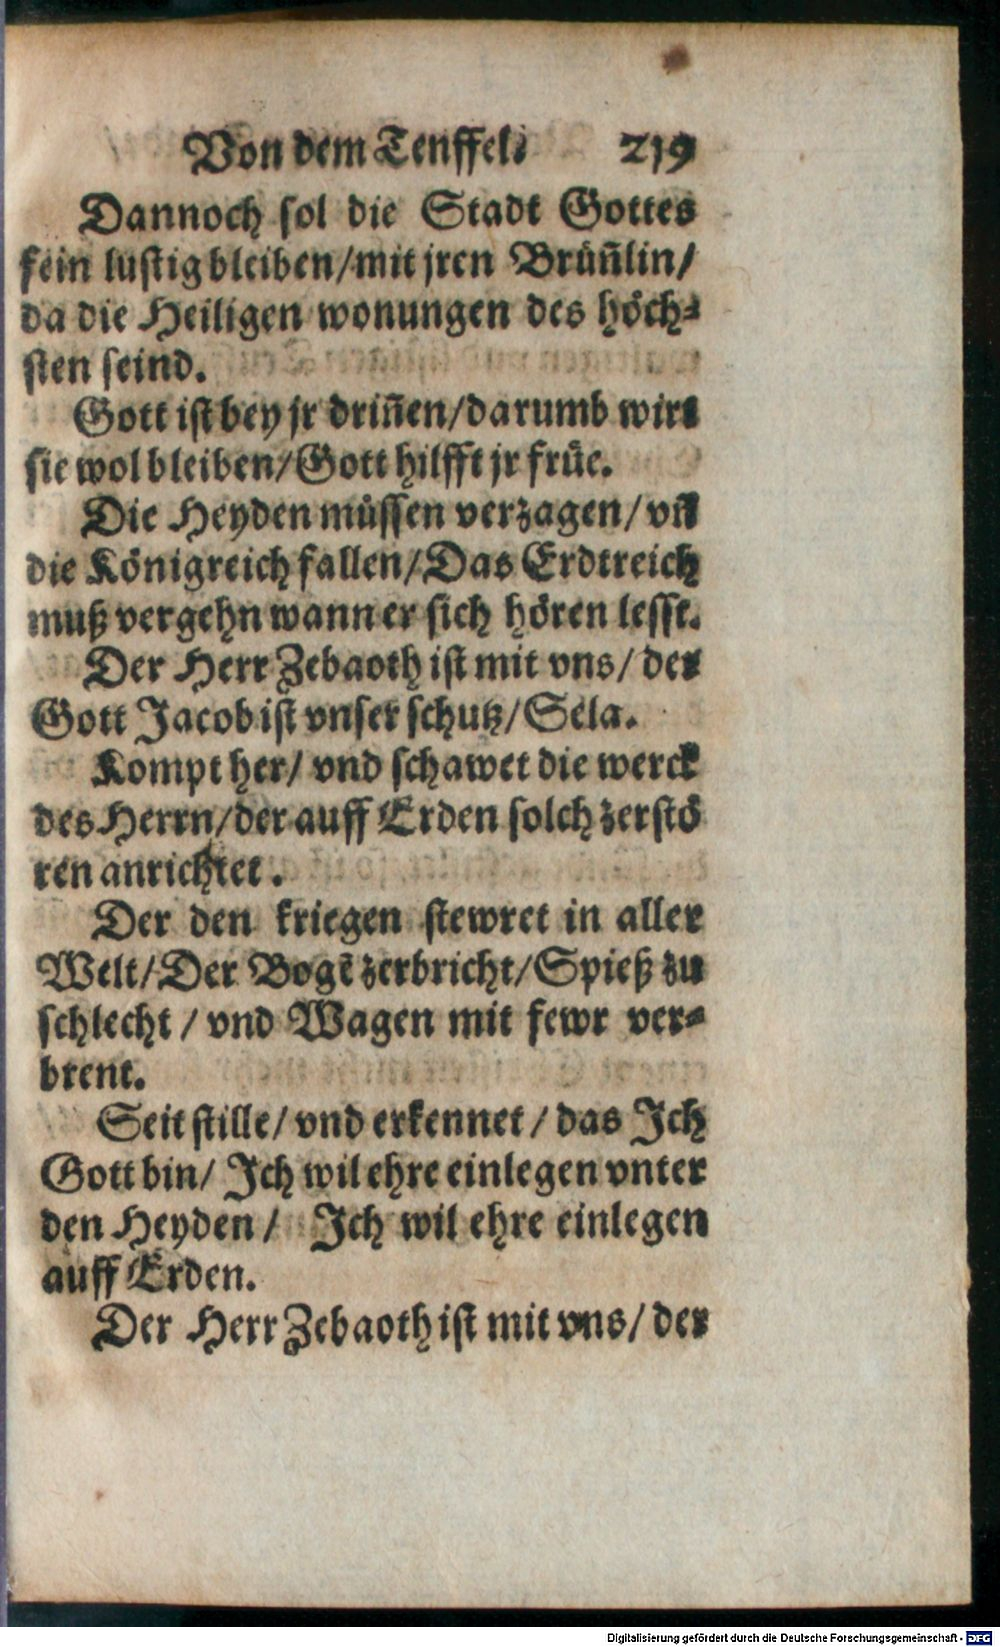 Von dem Tenffel. 219
Dannoch sol die Stadt Gottes
fein lustig bleiben/mit jren Brüñlin/
da die Heiligen wonungen des höch-
sten seind.
Gott ist bey jr driñen/darumb wirt
sie wol bleiben/Gott hilfft jr früe.
Die Heyden müssen verzagen/ vñ
die Königreich fallen/Das Erdtreich
muß vergehn wann er sich hören lesst.
Der Herr Zebaoth ist mit vns/ der
Gott Jacob ist vnser schutz/Sela.
Kompt her/ vnd schawet die werck
des Herrn/der auff Erden solch zerstö
ren anrichtet.
Der den kriegen stewret in aller
Welt/Der Bogē zerbricht/Spieß zu
schlecht / vnd Wagen mit fewr ver-
brent.
Seit stille/ vnd erkennet / das Ich
Gott bin/ Ich wil ehre einlegen vnter
den Heyden / Ich wil ehre einlegen
auff Erden.
Der Herr Zebaoth ist mit vns/ der
Digitalisierung gefördert durch die Deutsche Forschungsgemeinschaft - DFG